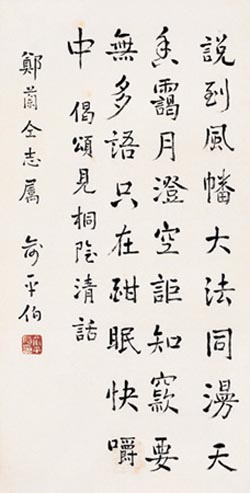 說到風幡大法同漫天
香靄月澄空詎知窾要
無多語只在酣眠快嚼
中 偈頌見桐陰清話
鄭蘭仝志屬 俞平伯